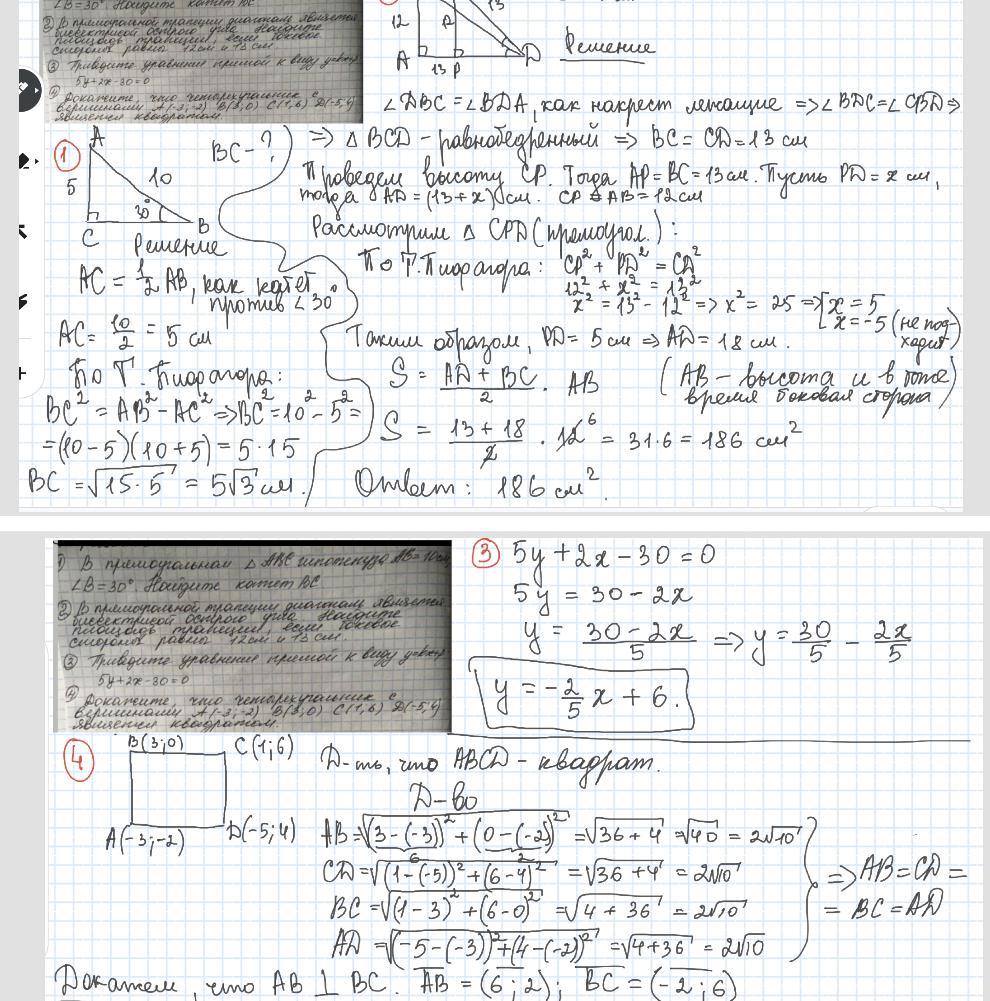 ∠B=30°. Найдите катет BC
② В прямоугольной трапеции диагональ является
биссектрисой острого угла. Найдите
площадь трапеции, если боковые
стороны равны 12см и 13 см
③ Приведите уравнения прямой к виду y=kx+b
5y+2x-30=0
④ Докажите, что четырехугольник с
вершинами A(-3;-2) B(3;0) C(1;6) D(-5;4)
является квадратом.
12
13
A
13 P
D
Решение
∠DBC = ∠BDA, как накрест лежащие => ∠BDC = ∠CBD =>
=> △ BCD - равнобедренный => BC = CD = 13 см
Проведем высоту CP. Тогда AP = BC = 13 см. Пусть PD = x см,
тогда AD = (13 + x) см. CP = AB = 12 см
Рассмотрим △ CPD (прямоугол.):
По т. Пифагора: CP² + PD² = CD²
12² + x² = 13²
x² = 13² - 12² => x² = 25 => [x = 5
x = -5 (не под-
ходит)
Таким образом, PD = 5 см => AD = 18 см.
S = (AD + BC)/2 · AB (AB - высота и в тоже
время боковая сторона)
S = (13 + 18)/2 · 12 6 = 31·6 = 186 см²
Ответ: 186 см².
①
BC - ?
A
5
10
30°
C
B
Решение
AC = 1/2 AB, как катет
против ∠30°
AC = 10/2 = 5 см
По Т. Пифагора:
BC² = AB² - AC² => BC² = 10² - 5² =
= (10 - 5)(10 + 5) = 5 · 15
BC = √15·5 = 5√3 см.
1) В прямоугольном △ ABC гипотенуза AB = 10 см
∠B = 30°. Найдите катет BC
② В прямоугольной трапеции диагональ является
биссектрисой острого угла. Найдите
площадь трапеции, если боковые
стороны равны 12см и 13 см.
③ Приведите уравнения прямой к виду y=kx+b
5y+2x-30=0
④ Докажите, что четырехугольник с
вершинами A(-3;-2) B(3;0) C(1;6) D(-5;4)
является квадратом.
③ 5y + 2x - 30 = 0
5y = 30 - 2x
y = (30 - 2x)/5 => y = 30/5 - 2x/5
y = -2/5 x + 6.
④
B(3;0)
C(1;6)
A(-3;-2)
D(-5;4)
Д-ть, что ABCD - квадрат.
Д-во
AB = √(3-(-3))² + (0-(-2))² = √36 + 4 = √40 = 2√10
6 2
CD = √(1-(-5))² + (6-4)² = √36 + 4 = 2√10
BC = √(1-3)² + (6-0)² = √4 + 36 = 2√10
AD = √(-5-(-3))² + (4-(-2))² = √4+36 = 2√10
=> AB = CD =
= BC = AD
Докажем, что AB ⊥ BC. AB = (6; 2); BC = (-2; 6)